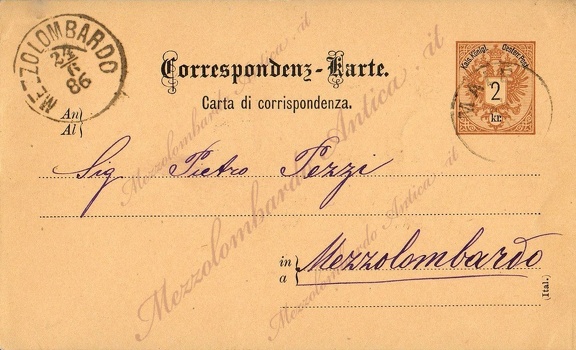 MEZZOLOMBARDO
86
Kais. Königl. Oesterr. Post
2
kr.
Correspondenz-Karte.
Carta di corrispondenza.
An
Al
Sig Pietro Pezzi
in
a
Mezzolombardo
Ital.
Mezzolombardo Antica.it
Mezzolombardo Antica.it
Mezzolombardo Antica.it